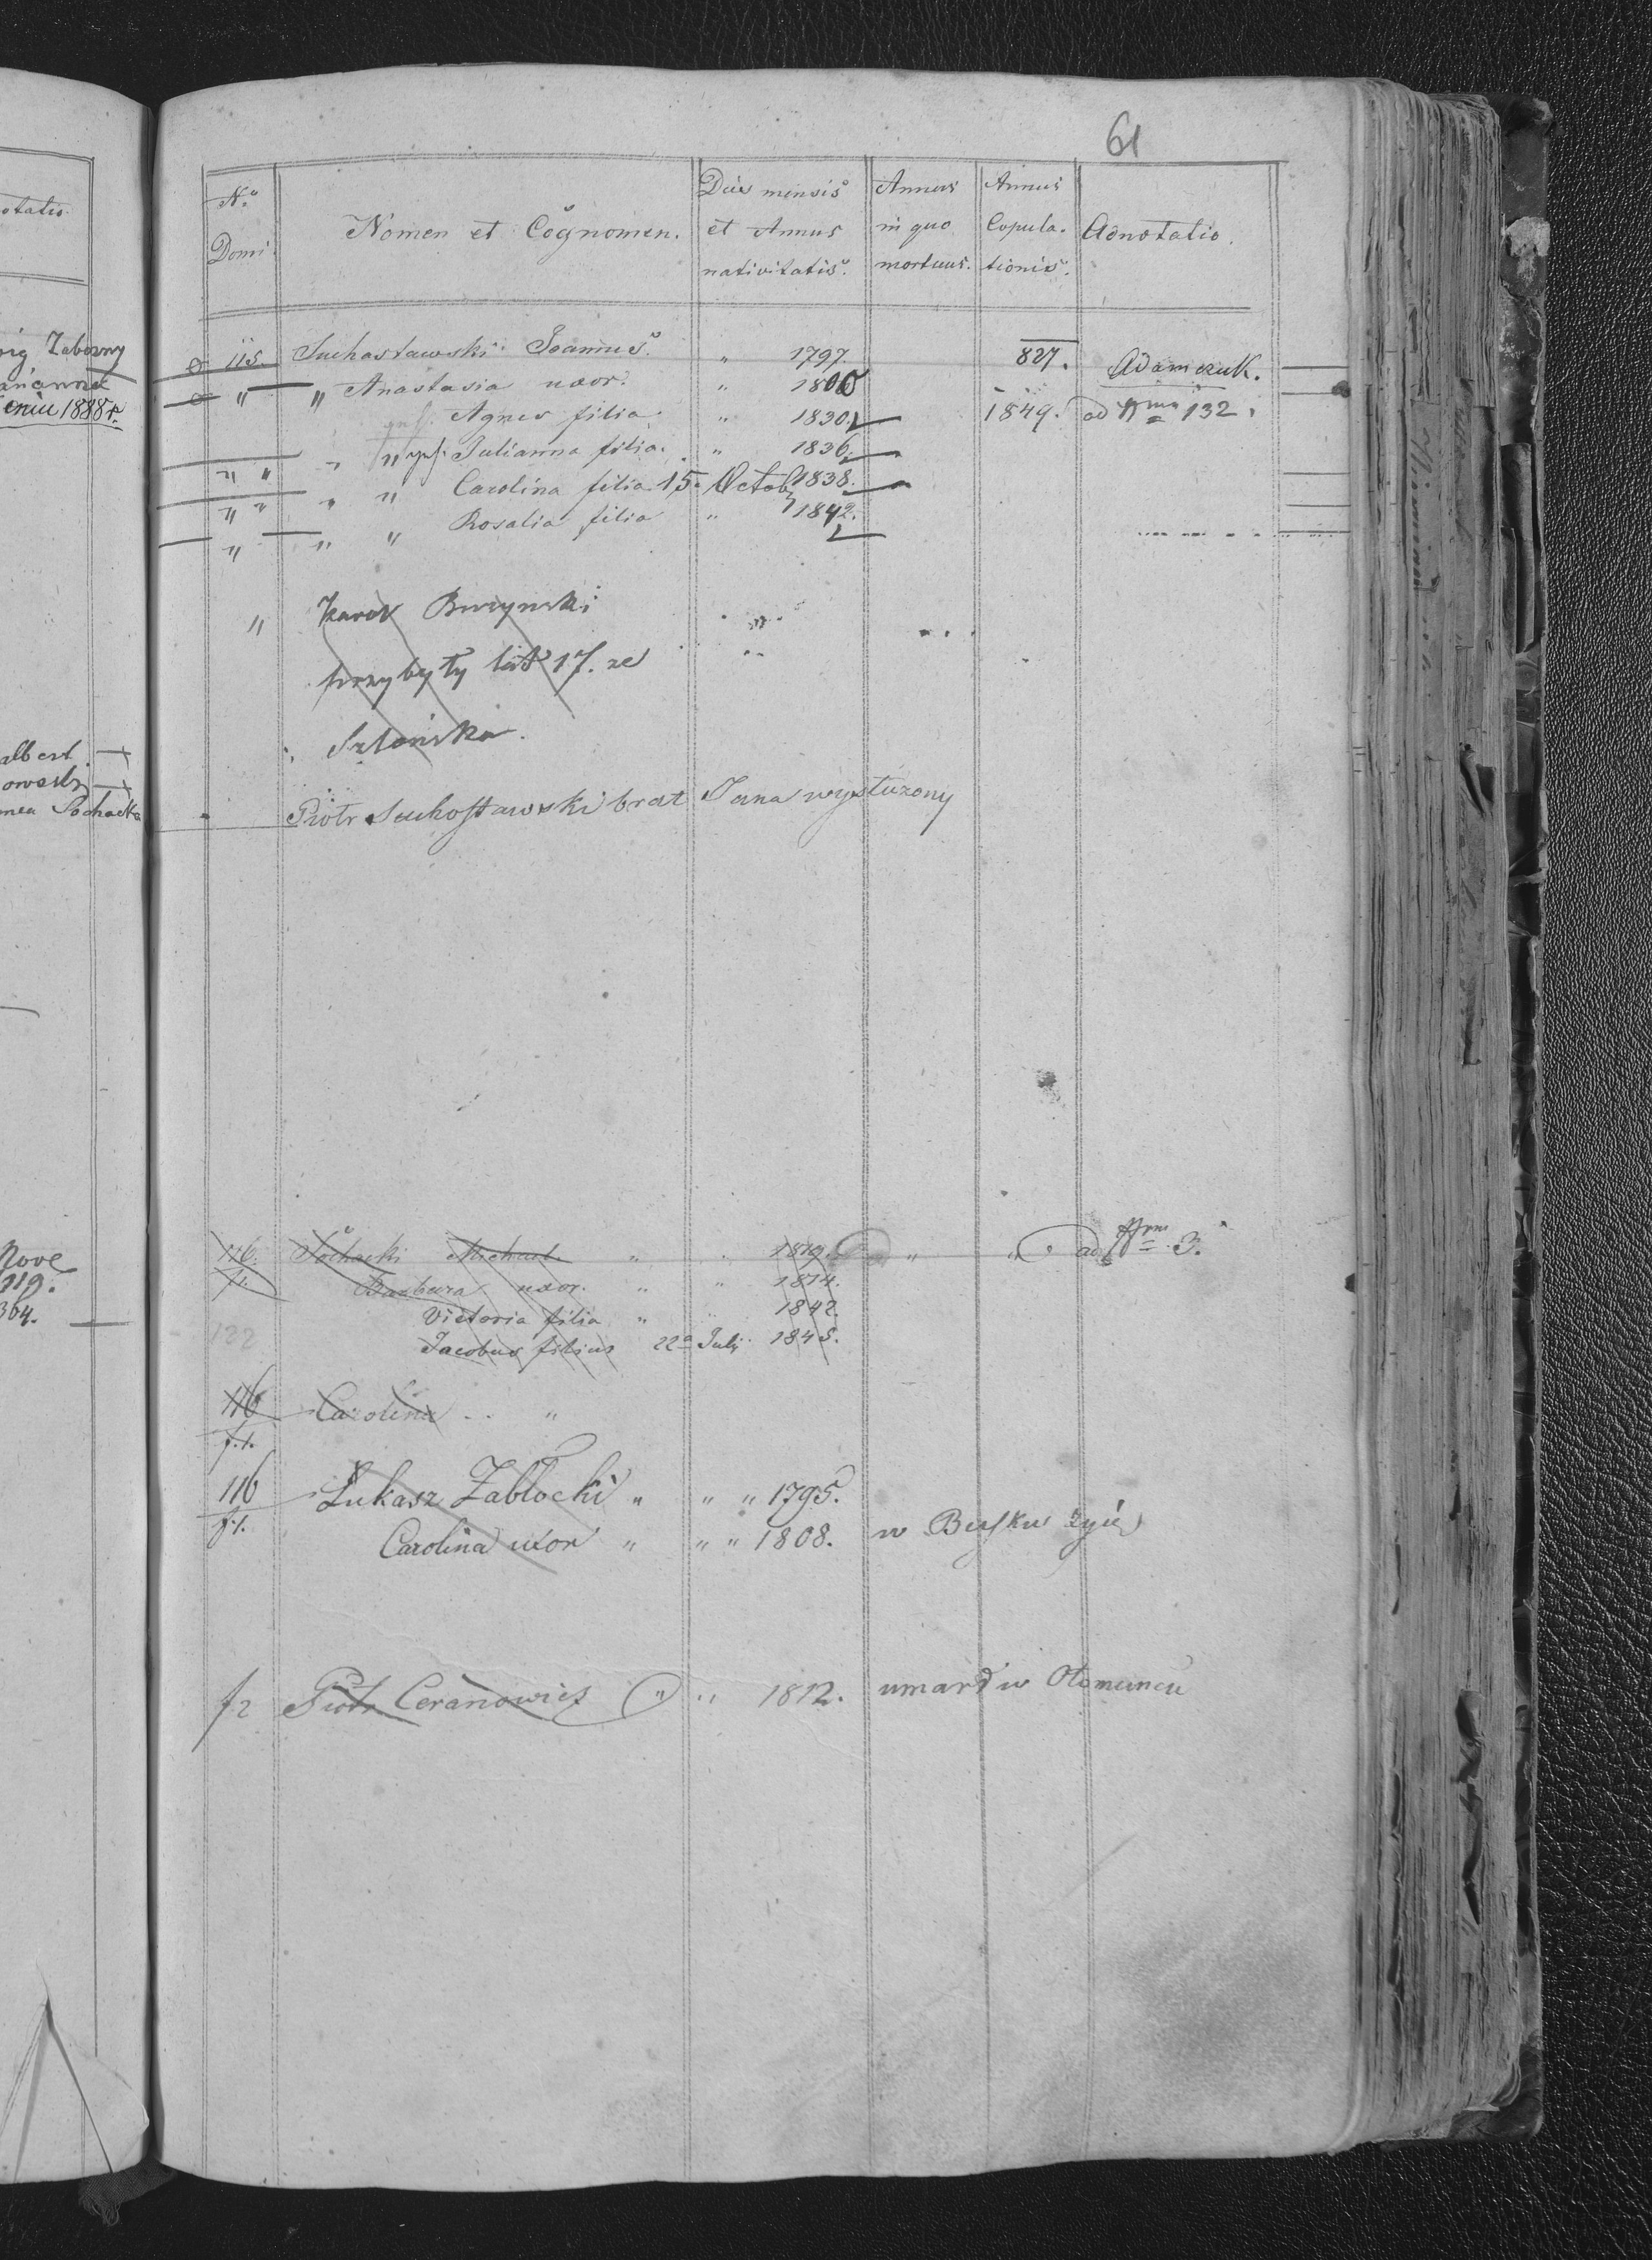 otatio.
Zaborny
1888 r.
albert
Nove
119.
364.
61
No. Domi. Nomen et Cognomen. Dies mensis et Annus nativitatis. Annus in quo mortuus. Annus Copulationis. Adnotatio.
115. Suchostawski Joannes. " 1797. 827. Adamczuk.
" " Anastasia uxor. " 1800
Agnes filia. " 1830. 1849. ad Nrum 132.
" " " " Julianna filia. " 1836.
" " " " Carolina filia 15. Octob 1838.
" " " Rosalia filia " 1842.
" Karol Burzynski
przybyły lat 17. ze
Piotr Suchostawski brat Jana wysłużony
116. Sochacki Michael " " 1819. " " ad Nrum 3.
f1. Barbara uxor. " " 1814.
Victoria filia " " 1842.
132 Jacobus filius 22a Julj 1845.
116 Carolina .. "
f.1.
116 Łukasz Zabłocki " " " 1795.
f.1. Carolina uxor " " " 1808. w Busku żyie
f2 Piotr Ceranowicz " " 1812. umarł w Ołomuncu